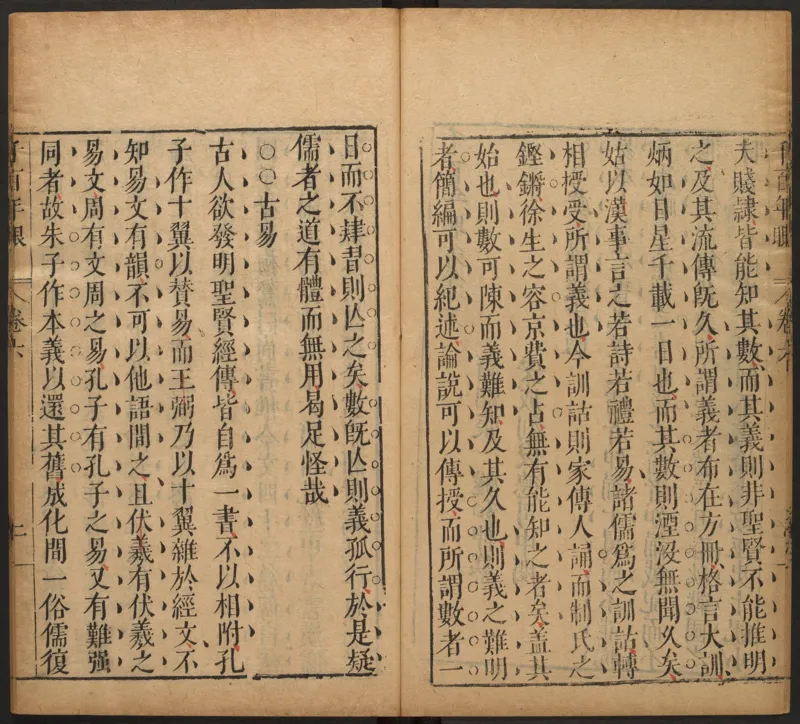 夫賤隸皆能知其數而其義則非聖賢不能推明
之及其流傳旣久所謂義者布在方冊格言大訓
炳如日星千載一日也而其數則湮沒無聞久矣
姑以漢事言之若詩若禮若易諸儒爲之訓詁轉
相授受所謂義也今訓詁則家傳人誦而制氏之
鏗鏘徐生之容京費之占無有能知之者矣蓋其
始也則數可陳而義難知及其久也則義之難明
者簡編可以紀述論說可以傳授而所謂數者一
日而不肄昔則亾之矣數旣亾則義孤行於是疑
儒者之道有體而無用曷足怪哉
○○古易
古人欲發明聖賢經傳皆自爲一書不以相附孔
子作十翼以贊易而王弼乃以十翼雜於經文不
知易文有韻不可以他語間之且伏羲有伏羲之
易文周有文周之易孔子有孔子之易又有難强
同者故朱子作本義以還其舊成化間一俗儒復
千百年眼 卷六 二